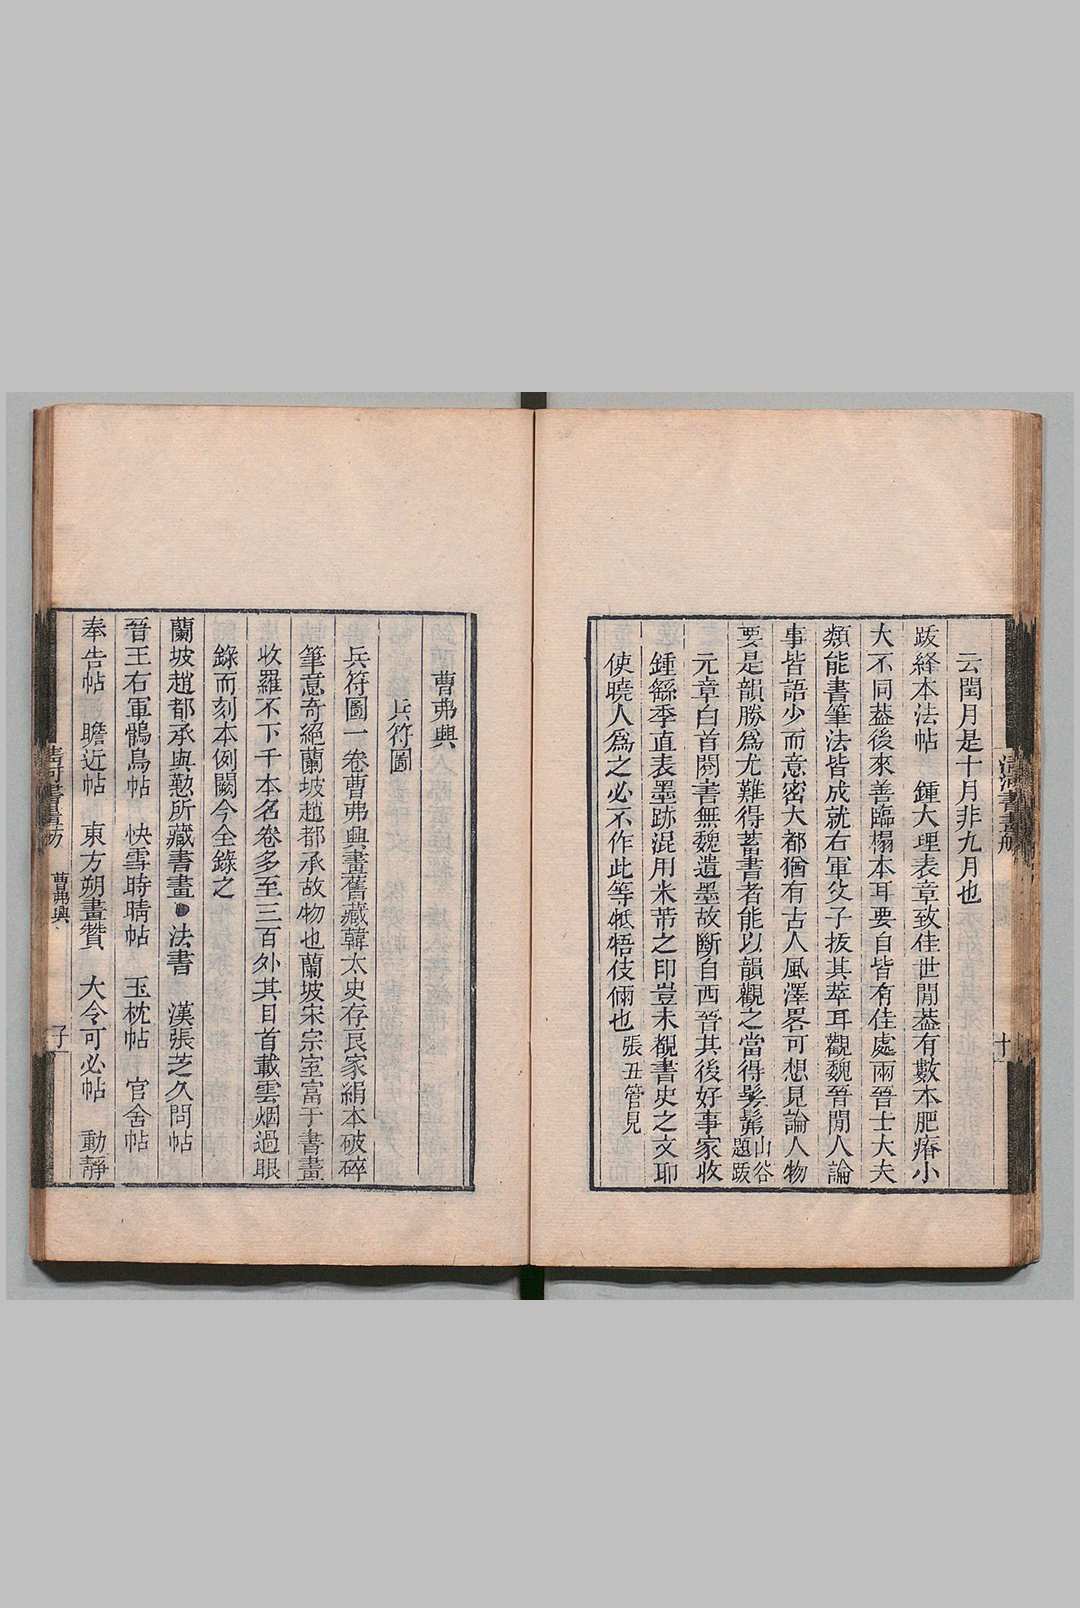 云閏月是十月非九月也
跋絳本法帖　鍾大理表章致佳世閒葢有數本肥瘠小
大不同葢後來善臨搨本耳要自皆有佳處兩晉士大夫
類能書筆法皆成就右軍父子拔其萃耳觀魏晉閒人論
事皆語少而意密大都猶有古人風澤畧可想見論人物
要是韻勝爲尤難得蓄書者能以韻觀之當得髣髴山谷題跋
元章白首閱書無魏遺墨故斷自西晉其後好事家收
鍾繇季直表墨跡混用米芾之印豈未覩書史之文耶
使曉人爲之必不作此等牴牾伎倆也張丑管見
清河書畫舫
十
曹弗興
兵符圖
兵符圖一卷曹弗興畫舊藏韓太史存良家絹本破碎
筆意奇絕蘭坡趙都承故物也蘭坡宋宗室富于書畫
收羅不下千本名卷多至三百外其目首載雲烟過眼
錄而刻本例闕今全錄之
蘭坡趙都承與懃所藏書畫●法書　漢張芝久問帖
晉王右軍鶻鳥帖　快雪時晴帖　玉枕帖　官舍帖
奉告帖　瞻近帖　東方朔畫贊　大令可必帖　動靜
清河書畫舫
曹弗興
子